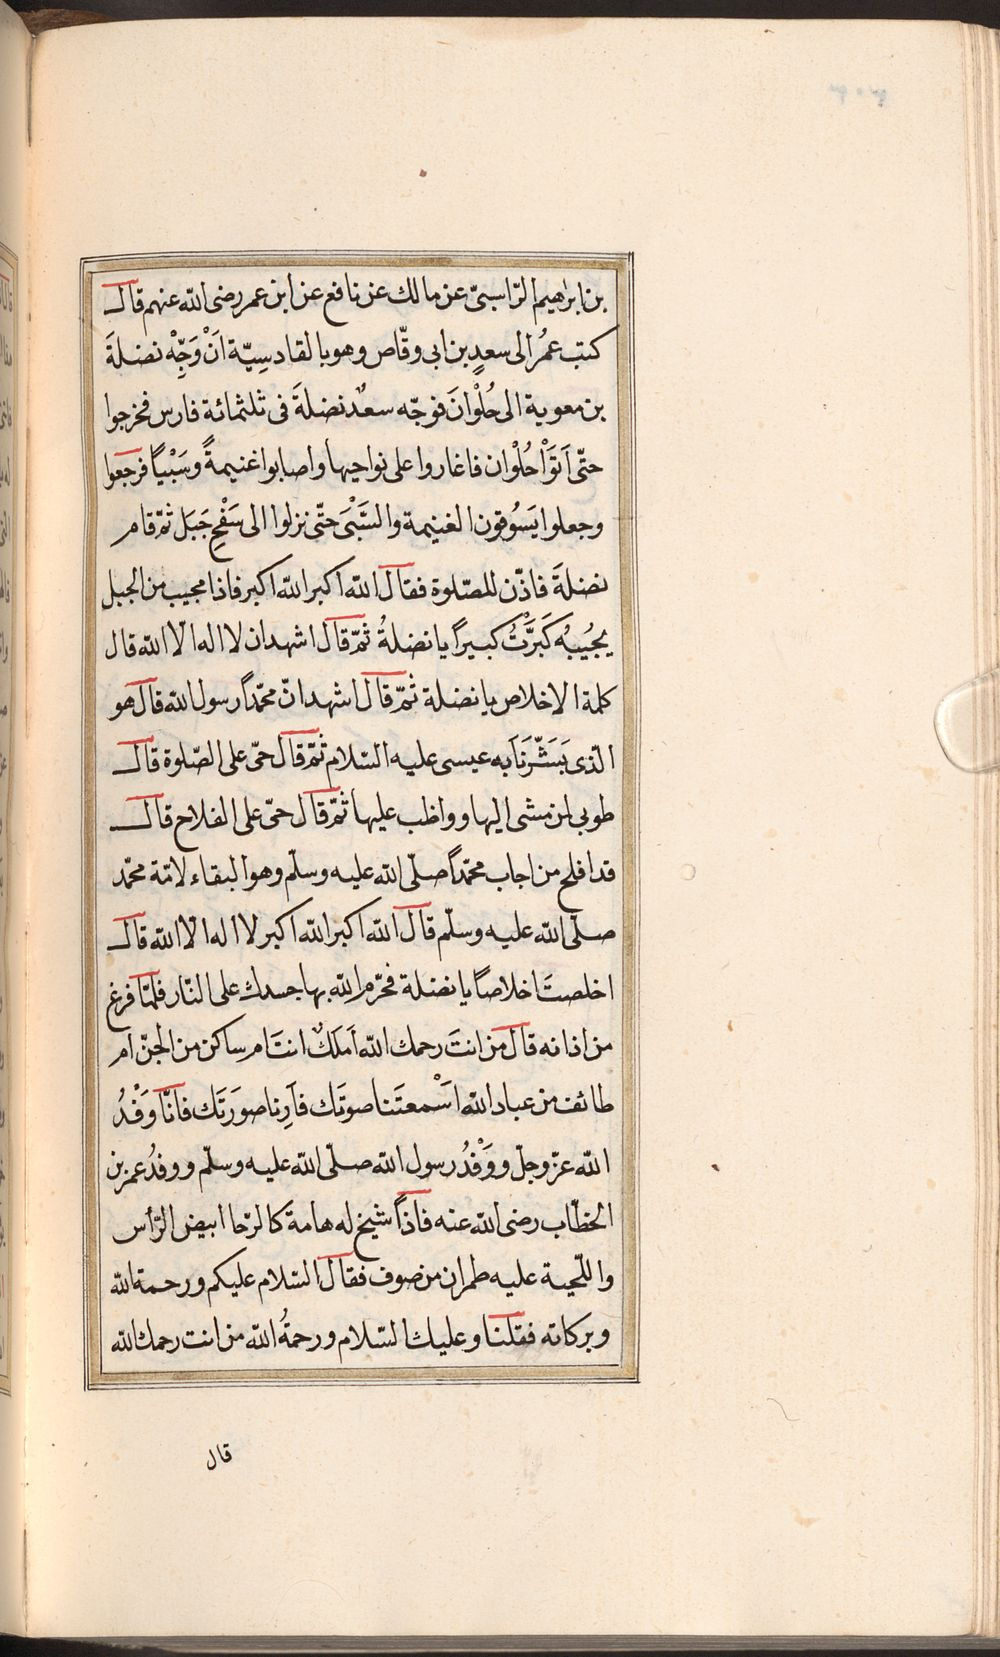 بن ابراهيم الرّاسبىّ عن مالك عن نافع عن ابن عمر رضى الله عنهم قال
كتب عمرُ الى سعدِ بن ابى وقّاص وهو بالقادسِيّة اَنْ وَجِّهْ نضلةَ
بن معوية الى حُلْوَانَ فوجّه سعدٌ نضلةَ فى ثلثمائة فارس فخرجوا
حتّى اَتَوْا حُلْوان فاغاروا على نواحيها واصابوا غنيمةً وسَبْيًا فرجعوا
وجعلوا يَسُوقون الغنيمة والسَّبْىَ حتّى نزلوا الى سَفْحِ جَبَل ثمّ قام
نضلةَ فاذّن للصّلوة فقال الله اكبر الله اكبر فاذا مجيب من الجبل
يجُيبُه كَبَرَّتُ كبيراً يا نضلةُ ثمّ قال اشهد ان لا اله الا الله قال
كلمة الاخلاص يا نضلة ثمّ قال اشهد انّ محمّداً رسول الله قال هو
الّذى بَشَّرَنَا به عيسى عليه السّلام ثمّ قال حىّ على الصّلوة قال
طوبى لمن مشى اليها وواظب عليها ثمّ قال حىّ على الفلاح قال
قد افلح من اجاب محمّداً صلّى الله عليه وسلّم وهو البقاء لامّة محمّد
صلّى الله عليه وسلّم قال الله اكبر الله اكبر لا اله الّا الله قال
اخلصتَ اخلاصًا يا نضلة فحّرم الله بها جسدك على النّار فلمّا فرغ
من اذانه قال من انتَ رحمك الله اَملكٌ انتَ ام ساكن من الجنّ ام
طائف من عباد الله اَسْمعتَنا صوتَك فاَرِنا صورَتَك فانّا وَفْدُ
الله عزّ وجلّ ووَفْدُ رسول الله صلّى الله عليه وسلّم ووفدُ عمر بن
الخطّاب رضى الله عنه فاذاً شيخ له هامة كالرّحا ابيض الرّأس
واللّحية عليه طمران من صوف فقال السّلام عليكم ورحمة الله
وبركاته فقلنا وعليك السّلام ورحمةُ الله من انت رحمك الله
قال